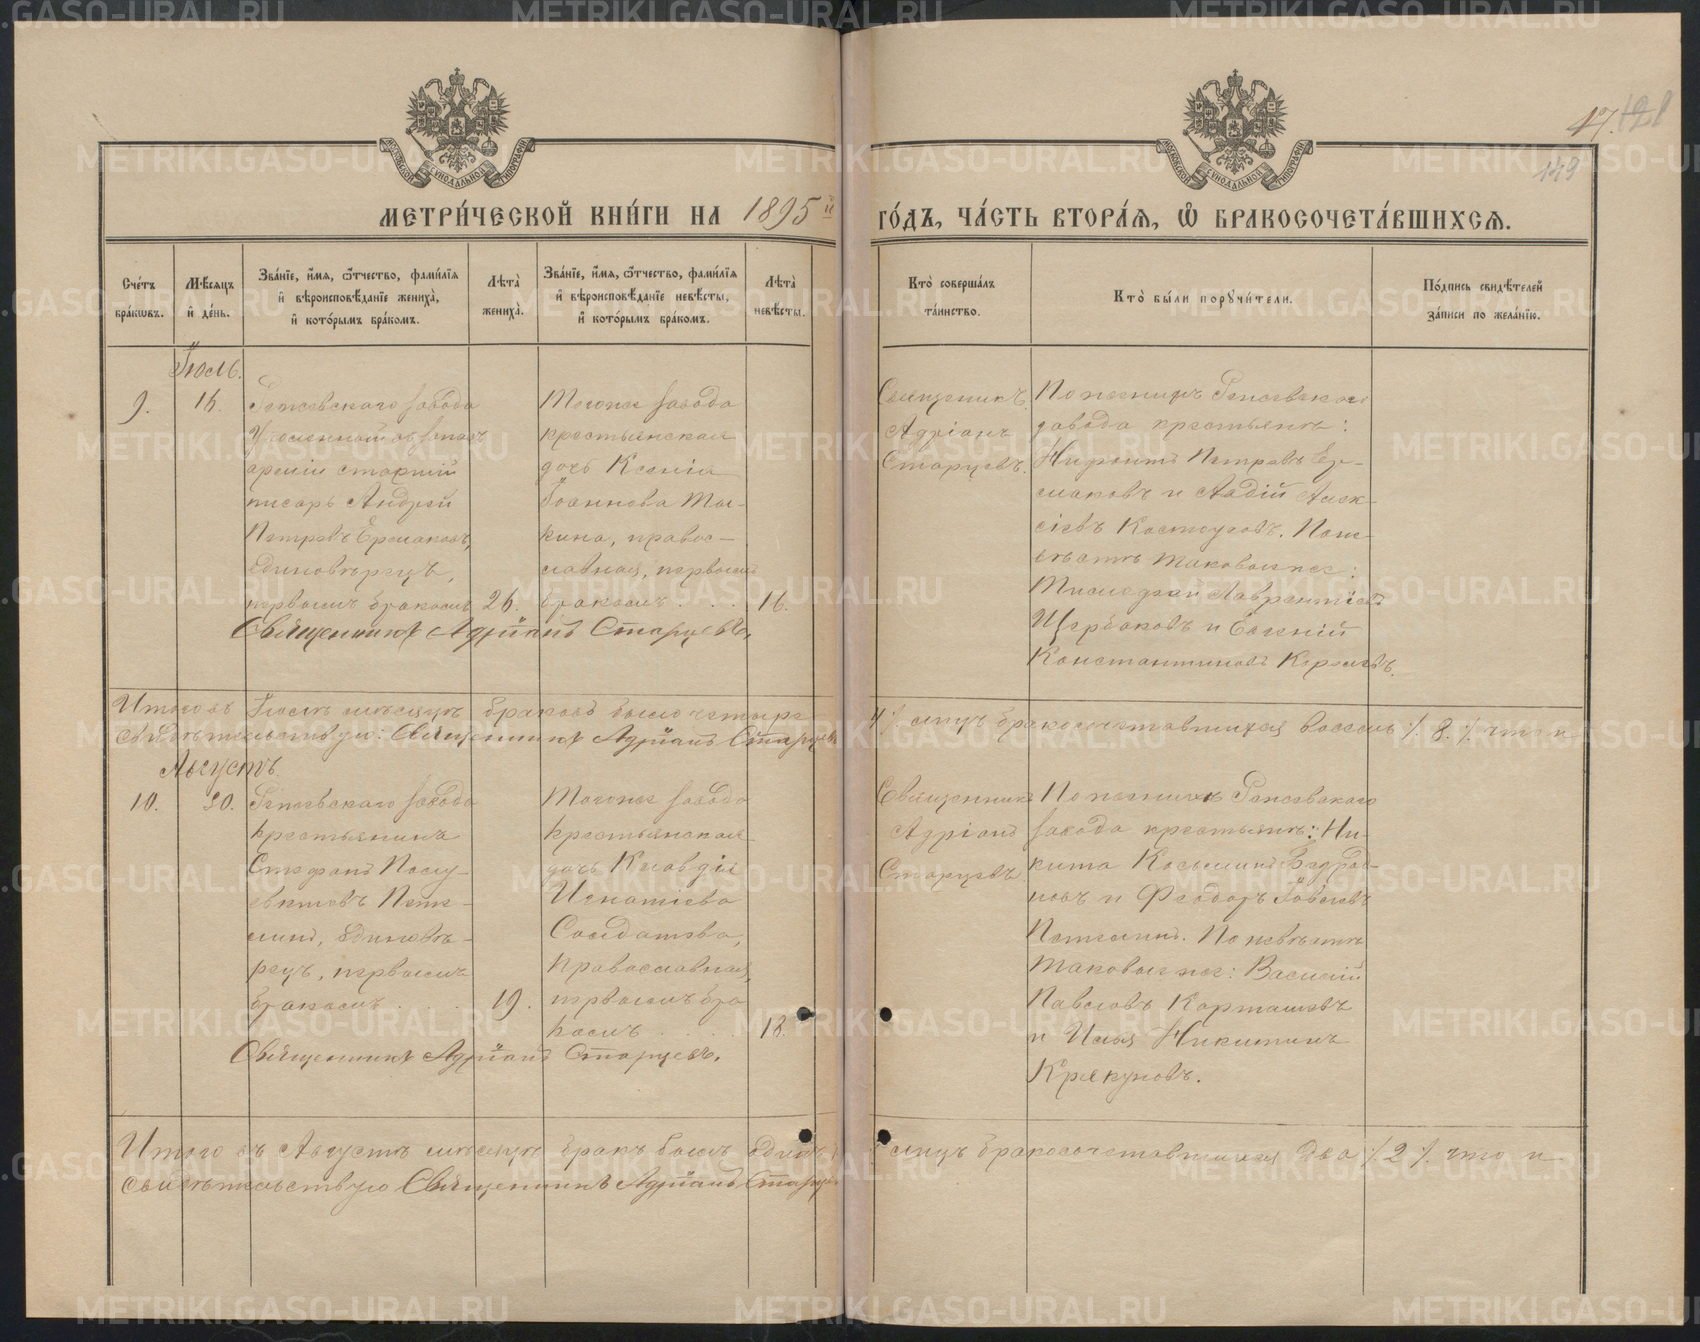 МЕТРИ́ЧЕСКОЙ КНИ́ГИ НА 1895 й ГО́ДЪ, ЧА́СТЬ ВТОРА́Я, Ѡ БРАКОСОЧЕТА́ВШИХСЯ.
149
Сче́тъ бра́кѡвъ.
Мѣ́сяцъ и҆ де́нь.
Зва́нїе, и҆́мя, ѻ҆́тчество, фами́лїя и҆ вѣроисповѣ́данїе жениха̀, и҆ кото́рымъ бра́комъ.
Лѣта̀ жениха̀.
Зва́нїе, и҆́мя, ѻ҆́тчество, фами́лїя и҆ вѣроисповѣ́данїе невѣ́сты, и҆ кото́рымъ бра́комъ.
Лѣта̀ невѣ́сты.
Кто̀ соверша́лъ та́инство.
Кто̀ бы́ли порꙋчи́тели.
По́дпись свидѣ́телей за́писи по жела́нїю.
Іюль.
9.
16.
Режевскаго завода
Уволенный въ запасъ
арміи старшій
писарь Андрей
Петровъ Ермаковъ,
единовѣрецъ,
первымъ бракомъ
26.
Того же завода
крестьянская
дочь Ксенія
Іоаннова
кина, правос-
лавная, первымъ
бракомъ . . .
16.
Священникъ
Адріанъ
Старцевъ.
По женихѣ Режевскаго
завода крестьяне:
Петровъ Ер-
маковъ и Алексѣ-
евъ Костоусовъ. По не-
вѣстѣ таковые же:
Лаврентіевъ
Щербаковъ и Евгеній
Константиновъ
Священникъ Адріанъ Старцевъ.
Итого въ Іюлѣ мѣсяцѣ браковъ было четыре 4 ⁒ лицъ бракосочетавшихся восемь ⁒ 8. ⁒ что и
свидѣтельствую: Священникъ Адріанъ Старцевъ
Августъ.
10.
30.
Режевскаго завода
крестьянинъ
Стефанъ Полу-
евктовъ Пете-
линъ, единовѣ-
рецъ, первымъ
бракомъ . . .
19.
Того же завода
крестьянская
дочь Клавдія
Игнатіева
Солдатова,
православная,
первымъ бра-
комъ . . . .
18.
Священникъ
Адріанъ
Старцевъ
По женихѣ Режевскаго
завода крестьяне: Ни-
кита Косьминъ
и Феодоръ
Петелинъ. По невѣстѣ
таковые же: Василій
Павловъ Карташевъ
и Илья Никитинъ
Крякуновъ.
Священникъ Адріанъ Старцевъ.
Итого въ Августѣ мѣсяцѣ бракъ былъ одинъ лицъ бракосочетавшихся два ⁒ 2 ⁒. что и
свидѣтельствую Священникъ Адріанъ Старцевъ
METRIKI.GASO-URAL.RU